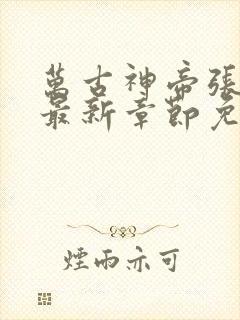 萬古神帝張
最新章節免
煙雨亦可